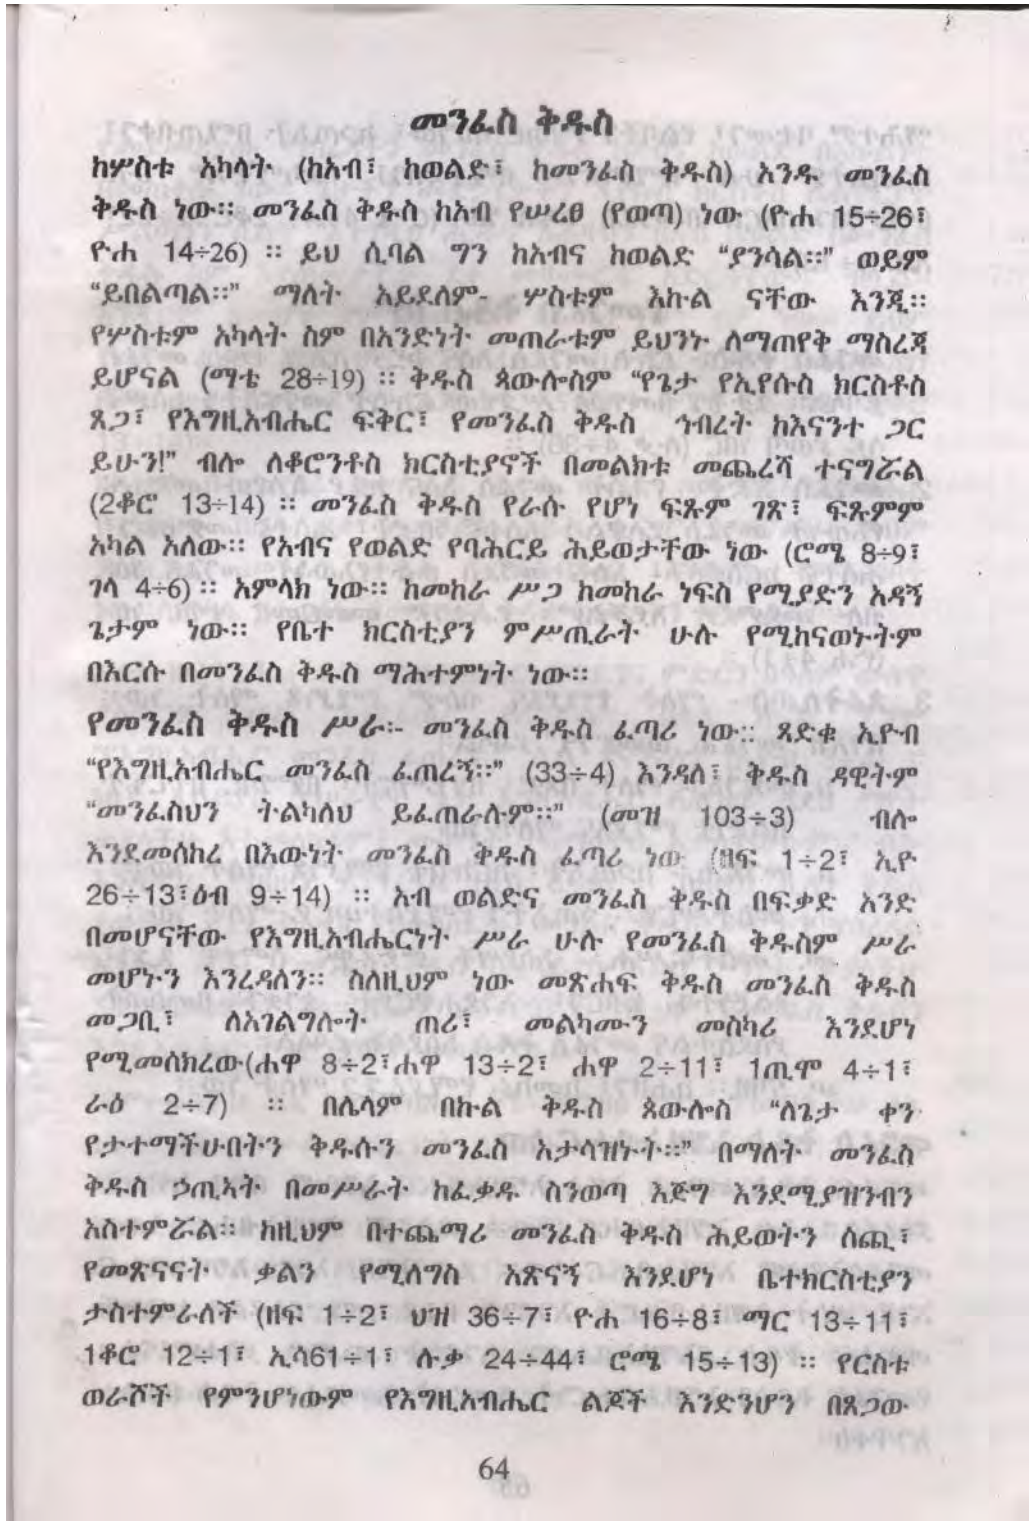 መንፈስ ቅዱስ
ከሦስቱ አካላት (ከአብ፣ ከወልድ፣ ከመንፈስ ቅዱስ) አንዱ መንፈስ
ቅዱስ ነው። መንፈስ ቅዱስ ከአብ የሠረፀ (የወጣ) ነው (ዮሐ 15÷26፣
ዮሐ 14÷26) ። ይህ ሲባል ግን ከአብና ከወልድ “ያንሳል።” ወይም
“ይበልጣል።” ማለት አይደለም- ሦስቱም እኩል ናቸው እንጂ።
የሦስቱም አካላት ስም በአንድነት መጠራቱም ይህንኑ ለማጠየቅ ማስረጃ
ይሆናል (ማቴ 28÷19) ። ቅዱስ ጳውሎስም “የጌታ የኢየሱስ ክርስቶስ
ጸጋ፣ የእግዚአብሔር ፍቅር፣ የመንፈስ ቅዱስ ኅብረት ከእናንተ ጋር
ይሁን!” ብሎ ለቆሮንቶስ ክርስቲያኖች በመልክቱ መጨረሻ ተናግሯል
(2ቆሮ 13÷14) ። መንፈስ ቅዱስ የራሱ የሆነ ፍጹም ገጽ፣ ፍጹምም
አካል አለው። የአብና የወልድ የባሕርይ ሕይወታቸው ነው (ሮሜ 8÷9፣
ገላ 4÷6) ። አምላክ ነው። ከመከራ ሥጋ ከመከራ ነፍስ የሚያድን አዳኝ
ጌታም ነው። የቤተ ክርስቲያን ምሥጢራት ሁሉ የሚከናወኑትም
በእርሱ በመንፈስ ቅዱስ ማሕተምነት ነው።
የመንፈስ ቅዱስ ሥራ:- መንፈስ ቅዱስ ፈጣሪ ነው:: ጻድቁ ኢዮብ
“የእግዚአብሔር መንፈስ ፈጠረኝ።” (33÷4) እንዳለ፣ ቅዱስ ዳዊትም
“መንፈስህን ትልካለህ ይፈጠራሉም።” (መዝ 103÷3) ብሎ
እንደመሰከረ በእውነት መንፈስ ቅዱስ ፈጣሪ ነው (ዘፍ 1÷2፣ ኢዮ
26÷13፣ዕብ 9÷14) ። አብ ወልድና መንፈስ ቅዱስ በፍቃድ አንድ
በመሆናቸው የእግዚአብሔርነት ሥራ ሁሉ የመንፈስ ቅዱስም ሥራ
መሆኑን እንረዳለን። ስለዚህም ነው መጽሐፍ ቅዱስ መንፈስ ቅዱስ
መጋቢ፣ ለአገልግሎት ጠሪ፣ መልካሙን መስካሪ እንደሆነ
የሚመሰክረው(ሐዋ 8÷2፣ሐዋ 13÷2፣ ሐዋ 2÷11፣ 1ጢሞ 4÷1፣
ራዕ 2÷7) ። በሌላም በኩል ቅዱስ ጳውሎስ “ለጌታ ቀን
የታተማችሁበትን ቅዱሱን መንፈስ አታሳዝኑት።” በማለት መንፈስ
ቅዱስ ኃጢአት በመሥራት ከፈቃዱ ስንወጣ እጅግ እንደሚያዝንብን
አስተምሯል። ከዚህም በተጨማሪ መንፈስ ቅዱስ ሕይወትን ሰጪ፣
የመጽናናት ቃልን የሚለግስ አጽናኝ እንደሆነ ቤተክርስቲያን
ታስተምራለች (ዘፍ 1÷2፣ ህዝ 36÷7፣ ዮሐ 16÷8፣ ማር 13÷11፣
1ቆሮ 12÷1፣ ኢሳ61÷1፣ ሉቃ 24÷44፣ ሮሜ 15÷13) ። የርስቱ
ወራሾች የምንሆነውም የእግዚአብሔር ልጆች እንድንሆን በጸጋው
64